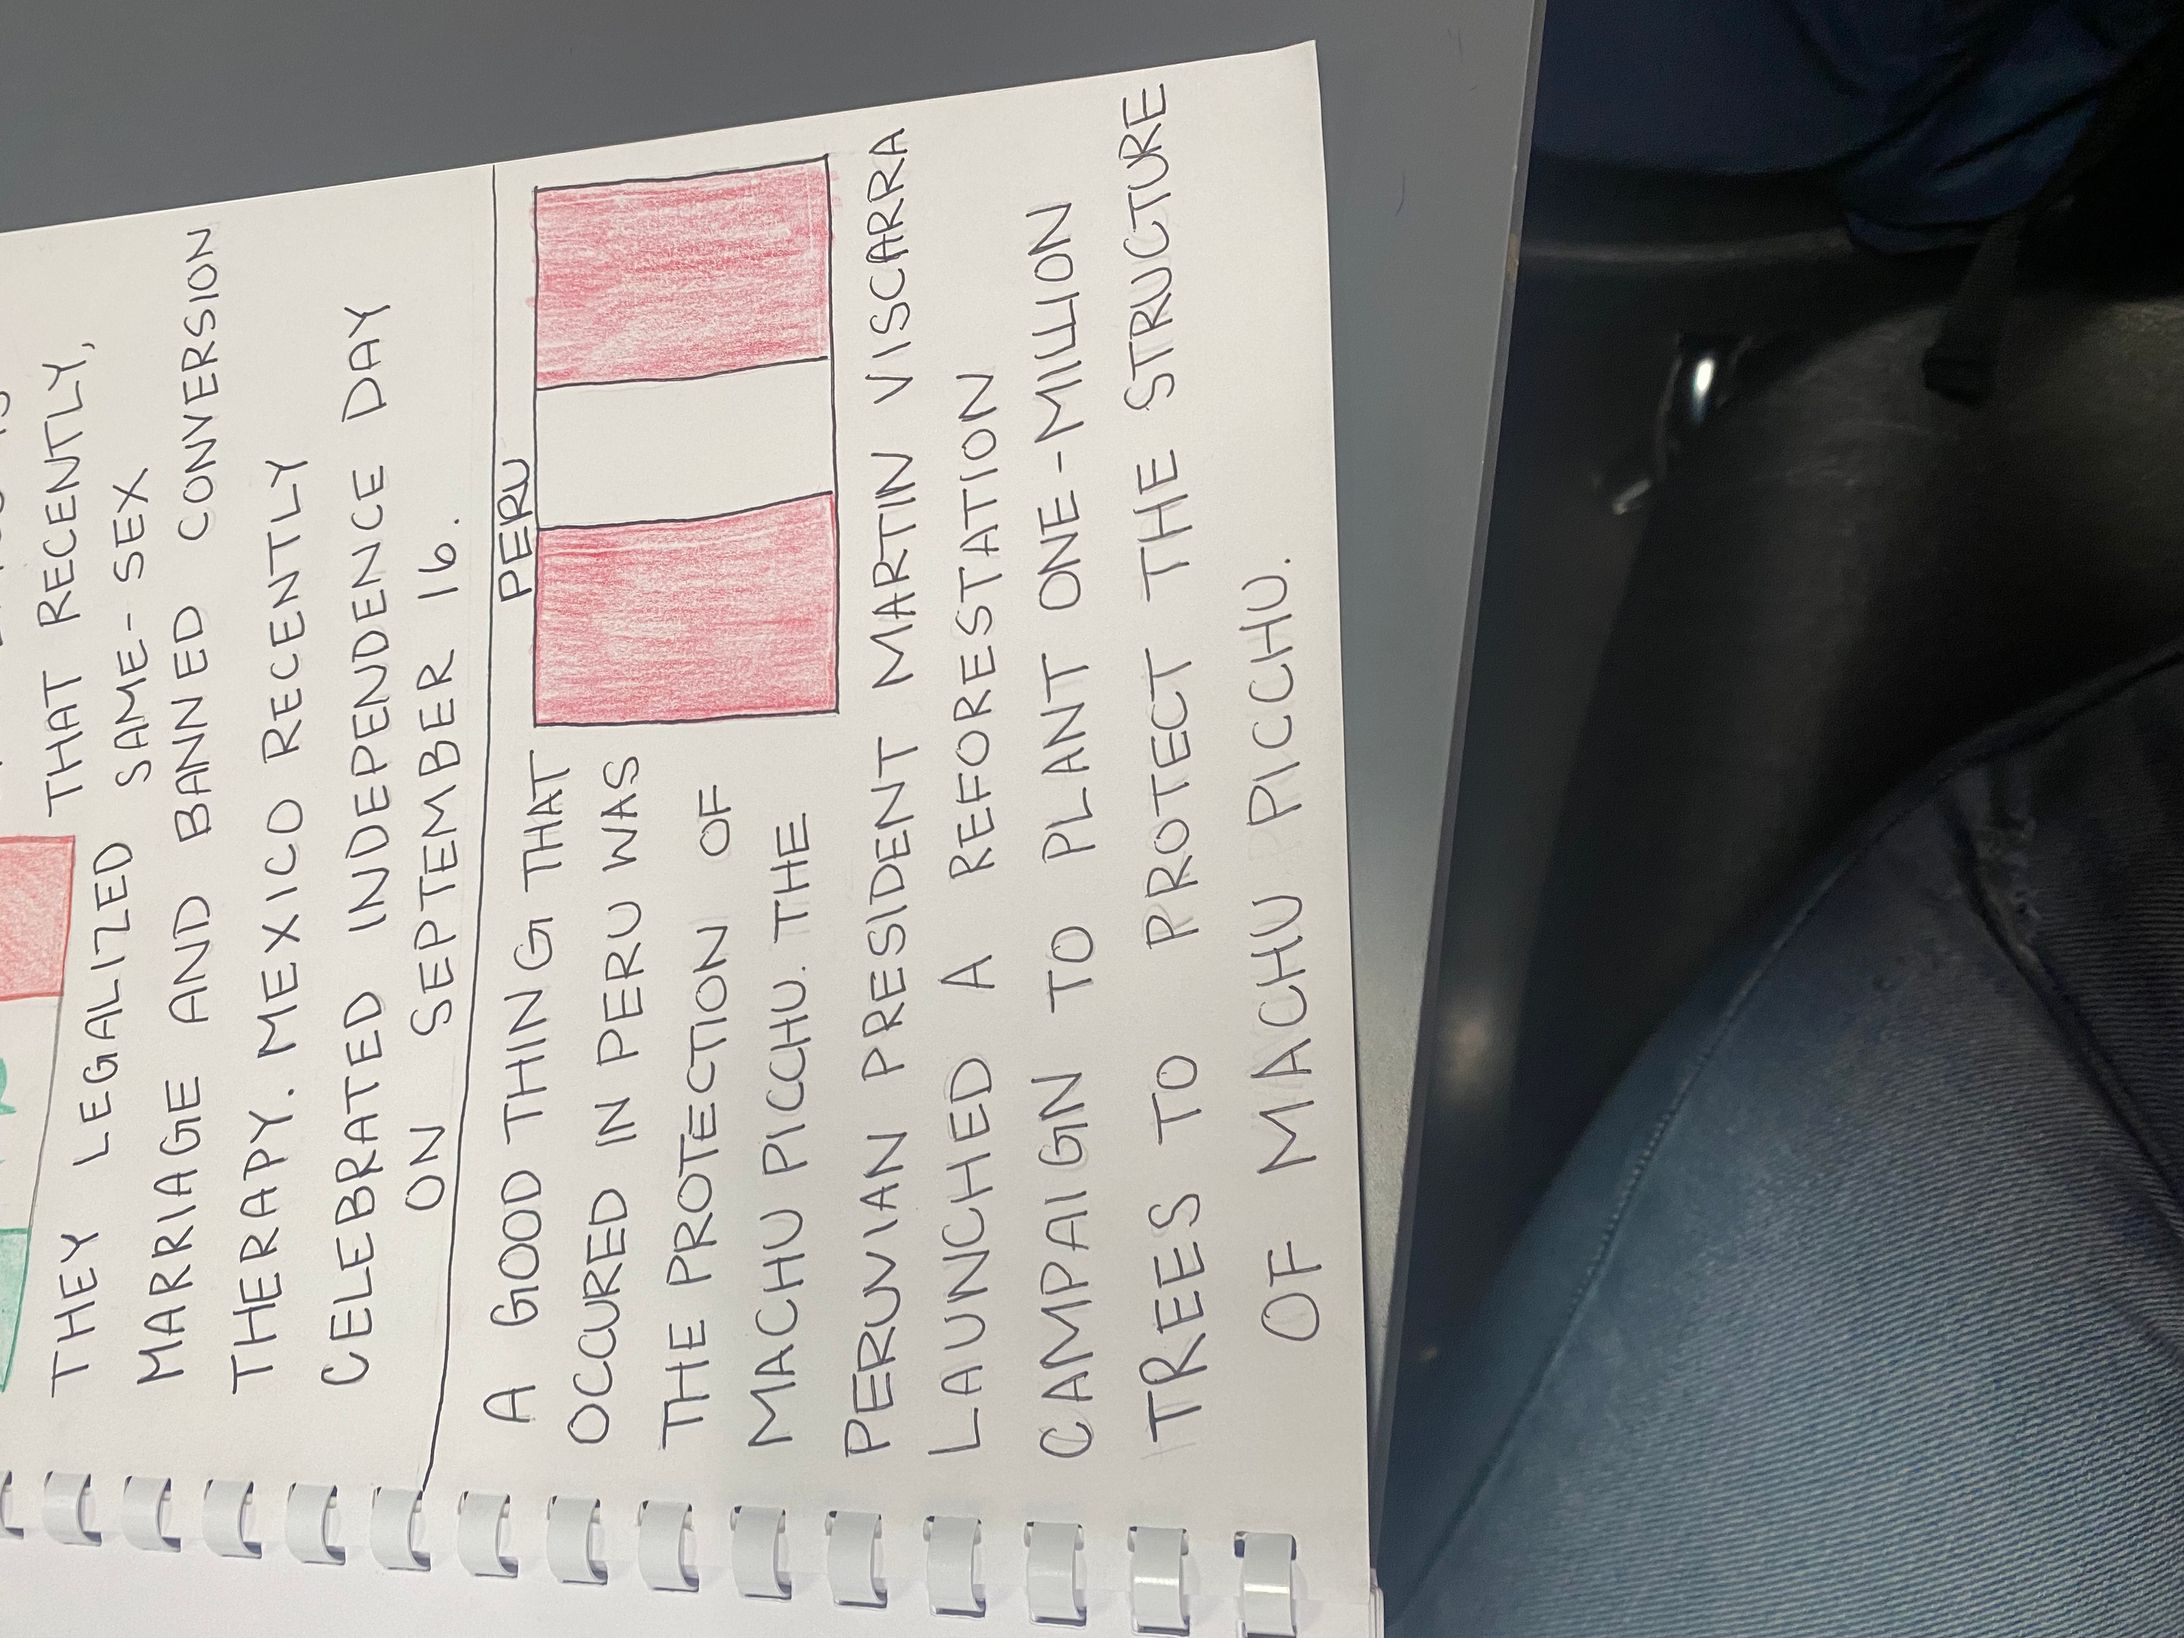 THAT RECENTLY,
THEY LEGALIZED SAME-SEX
MARRIAGE AND BANNED CONVERSION
THERAPY. MEXICO RECENTLY
CELEBRATED INDEPENDENCE DAY
ON SEPTEMBER 16.
PERU
A GOOD THING THAT
OCCURED IN PERU WAS
THE PROTECTION OF
MACHU PICCHU. THE
PERUVIAN PRESIDENT MARTIN VISCARRA
LAUNCHED A REFORESTATION
CAMPAIGN TO PLANT ONE-MILLION
TREES TO PROTECT THE STRUCTURE
OF MACHU PICCHU.